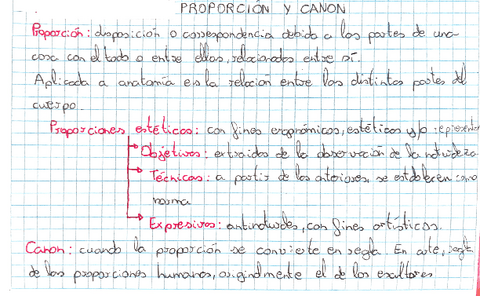 PROPORCIÓN Y CANON
Proporción: disposición o correspondencia debida a las partes de una
cosa con el todo o entre ellas, relacionadas entre sí.
Aplicada a anatomía es la relación entre las distintas partes del
cuerpo.
Proporciones estéticas: con fines ergonómicos, estéticos y/o
Objetivas: extraídas de la observación de la naturaleza
Técnicas: a partir de las anteriores se establecen como
norma
Expresivas: antinaturales, con fines artísticos.
Canon: cuando la proporción se convierte en regla. En arte, regla
de las proporciones humanas, originalmente el de los escultores